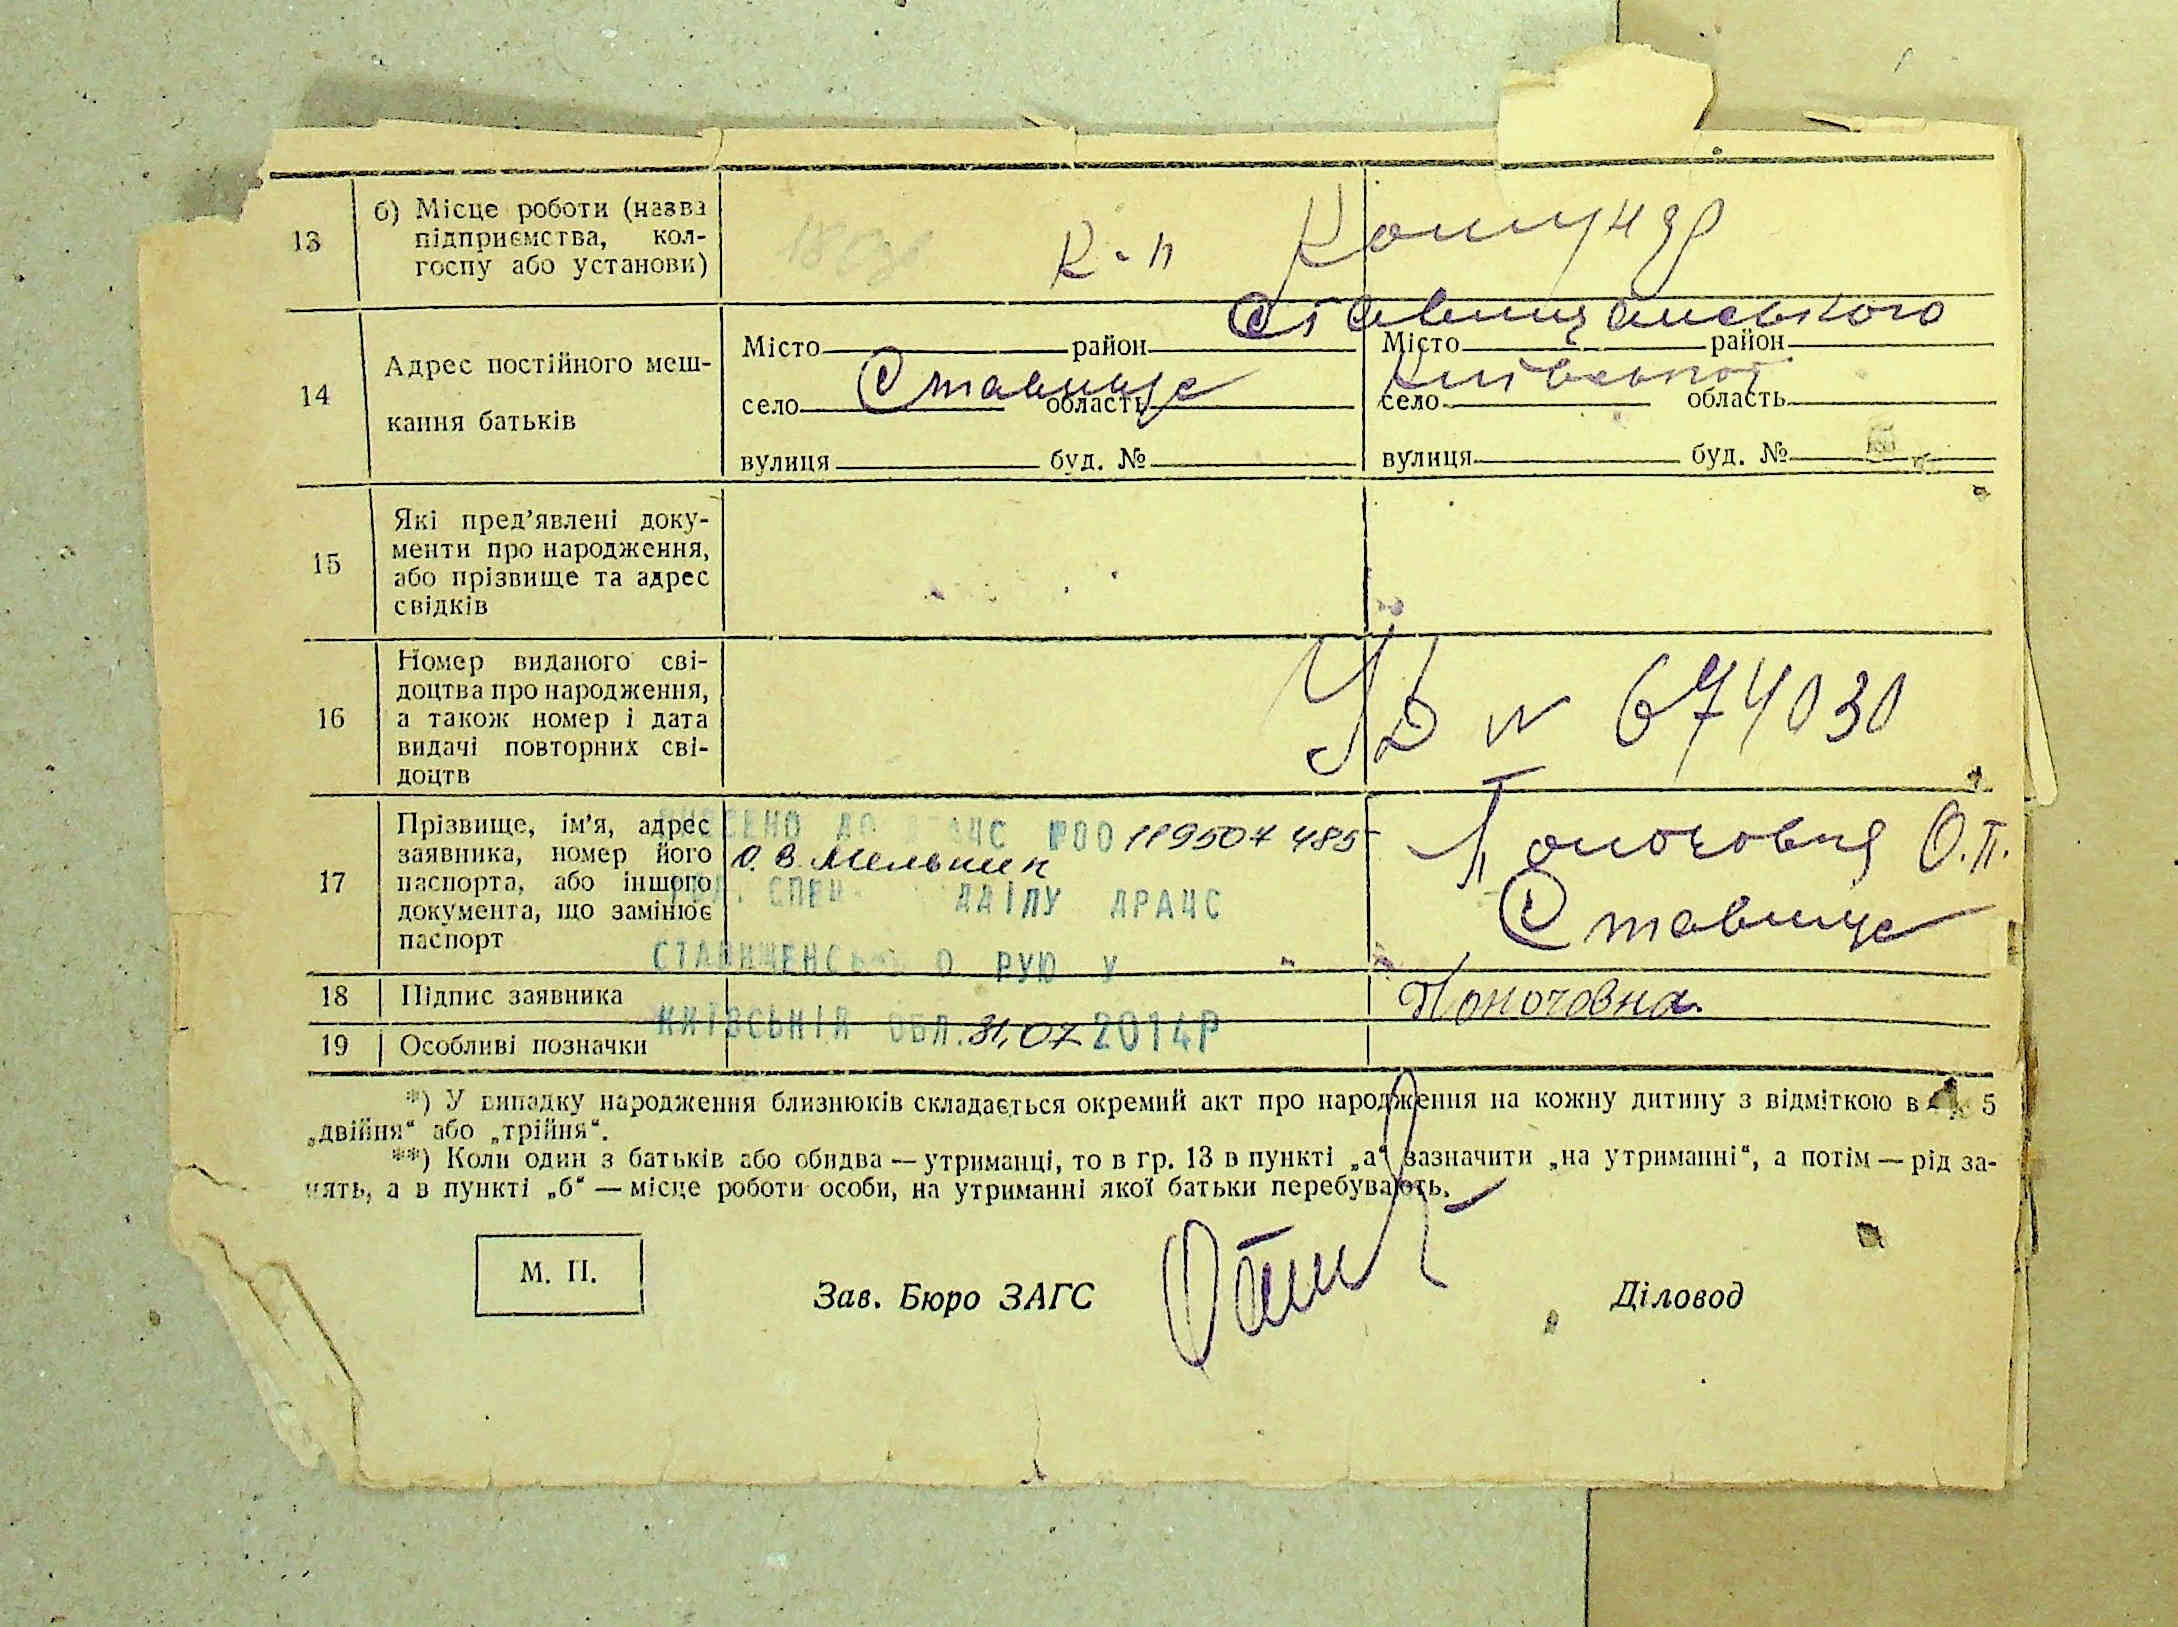 13
б) Місце роботи (назва
підприємства, кол-
госпу або установи)
К-п
14
Адрес постійного меш-
кання батьків
Ставищанського
Місто район Місто район
Ставище Київської
село область село область
вулиця буд. № вулиця буд. №
15
Які пред’явлені доку-
менти про народження,
або прізвище та адрес
свідків
16
Номер виданого сві-
доцтва про народження,
а також номер і дата
видачі повторних сві-
доцтв
N 674030
17
Прізвище, ім’я, адрес
заявника, номер його
паспорта, або іншого
документа, що замінює
паспорт
ДРАЦС №00119507485
О.В. Мельник
ДРАЦС
РУЮ У
КИЇВСЬКІЙ ОБЛ. 31.07 2014Р
О.П.
Ставище
18 Підпис заявника Поночовна
19 Особливі позначки
*) У випадку народження близнюків складається окремий акт про народження на кожну дитину з відміткою в 5
„двійня“ або „трійня“.
**) Коли один з батьків або обидва — утриманці, то в гр. 13 в пункті „а“ зазначити „на утриманні“, а потім — рід за-
нять, а в пункті „б“ — місце роботи особи, на утриманні якої батьки перебувають.
М. П.
Зав. Бюро ЗАГС Діловод